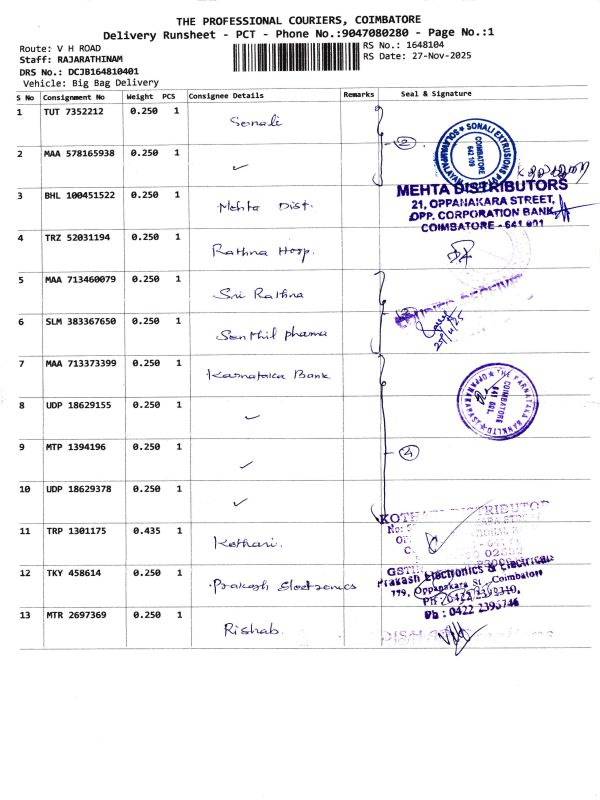 THE PROFESSIONAL COURIERS, COIMBATORE
Delivery Runsheet - PCT - Phone No.:9047080280 - Page No.:1
Route: V H ROAD
RS No.: 1648104
Staff: RAJARATHINAM
RS Date: 27-Nov-2025
DRS No.: DCJB164810401
Vehicle: Big Bag Delivery
S No Consignment No Weight PCS Consignee Details Remarks Seal & Signature
1 TUT 7352212 0.250 1 Sonali
2 MAA 578165938 0.250 1 ✓
2
SONALI EXTRUSIONS
COIMBATORE
642 109
3 BHL 100451522 0.250 1 Mehta Dist.
MEHTA DISTRIBUTORS
21, OPPANAKARA STREET,
OPP. CORPORATION BANK,
COIMBATORE - 641 001
4 TRZ 52031194 0.250 1 Rathna Hosp.
5 MAA 713460079 0.250 1 Sri Rathna
6 SLM 383367650 0.250 1 Senthil pharma
27/11/25
7 MAA 713373399 0.250 1 Karnataka Bank
THE KARNATAKA BANK LTD
COIMBATORE
641 001.
8 UDP 18629155 0.250 1 ✓
9 MTP 1394196 0.250 1 ✓
4
10 UDP 18629378 0.250 1 ✓
11 TRP 1301175 0.435 1 Kothari.
12 TKY 458614 0.250 1 Prakash Electronics
Prakash Electronics & Electricals
779, Oppanakara St., Coimbatore
Ph : 0422 2395746
13 MTR 2697369 0.250 1 Rishab.